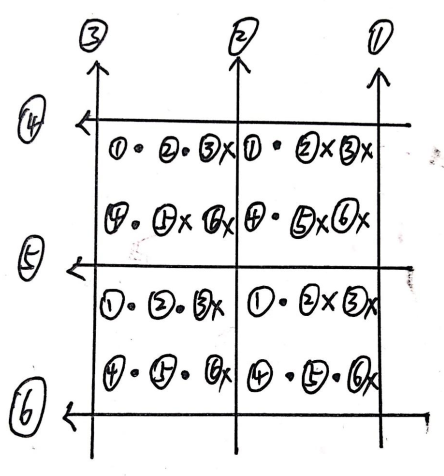 ③ ② ①
④
①・②・③× ①・②×③×
④・⑤×⑥× ④・⑤×⑥×
⑤
①・②・③× ①・②×③×
④・⑤・⑥× ④・⑤・⑥×
⑥